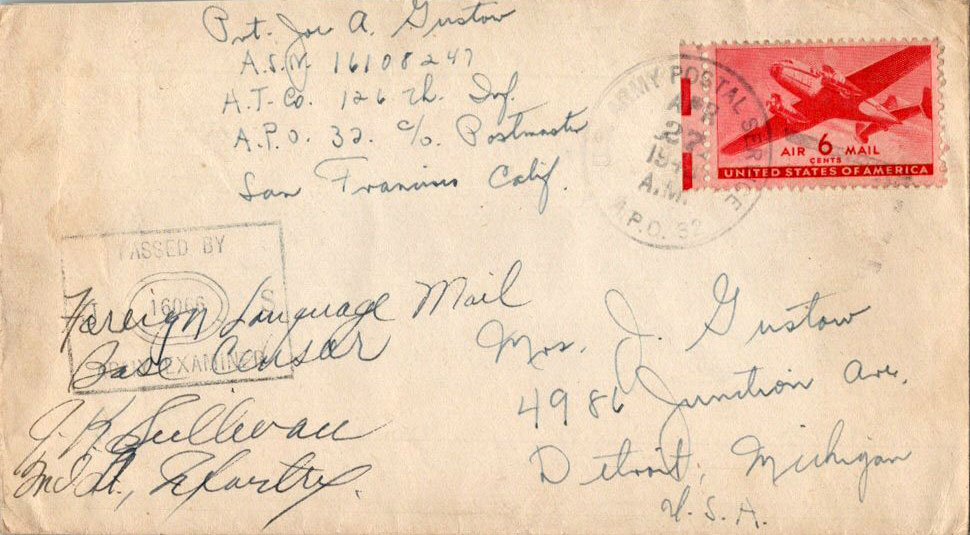 Pvt. Joe A. Gustow
A.S.N. 16108247
A.T-Co. 126 th. Inf.
A.P.O. 32. c/o Postmaster
San Francisco Calif.
ARMY POSTAL SERVICE
APR
27
A.M.
A.P.O. 32
AIR 6 MAIL
CENTS
UNITED STATES OF AMERICA
PASSED BY
16066
S
ARMY EXAMINER
Foreign Language Mail
Base Censor
J. K. Sullivan
2nd Lt., Infantry.
Mrs. J. Gustow
4986 Junction Ave.
Detroit, Michigan
U.S.A.